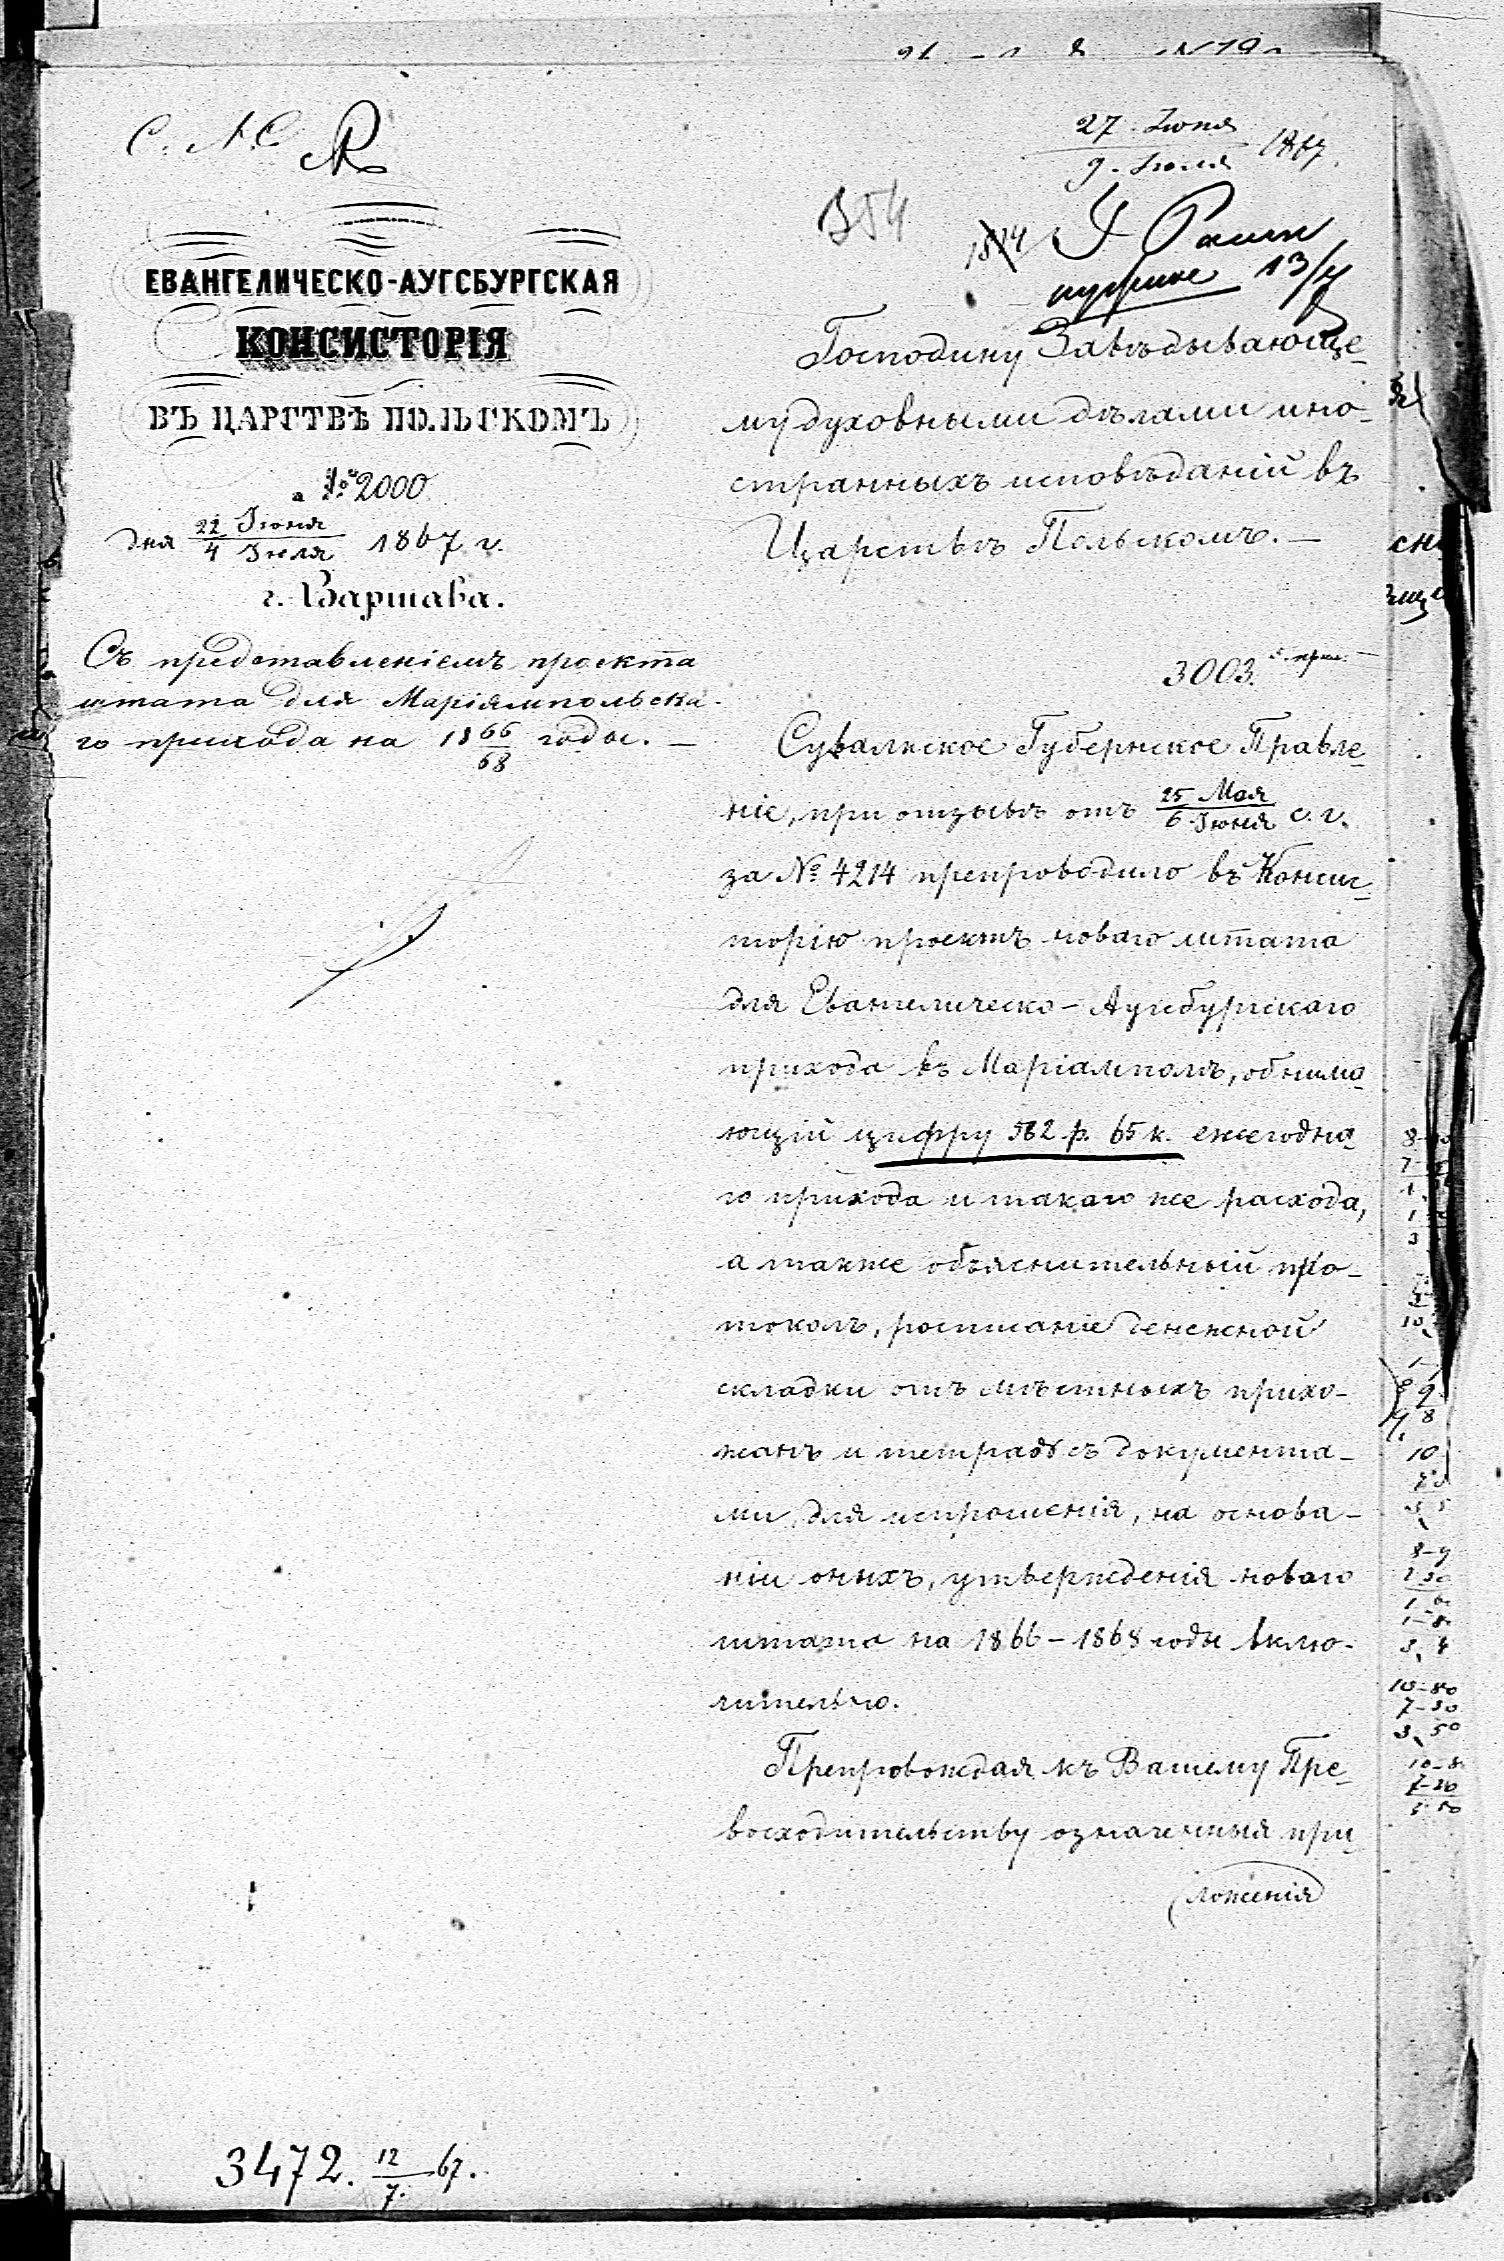 С. N. С.
27 Іюня
9 Іюля 1867.
354
13/7
ЕВАНГЕЛИЧЕСКО-АУГСБУРГСКАЯ
КОНСИСТОРІЯ
ВЪ ЦАРСТВѢ ПОЛЬСКОМЪ
№ 2000
дня 22 Іюня / 4 Іюля 1867 г.
г. Варшава.
Съ представленіемъ проекта
штата для Маріямпольска-
го прихода на 1866/68 годы. —
Господину Завѣдывающе-
му духовными дѣлами ино-
странныхъ исповѣданій въ
Царствѣ Польскомъ. —
3003.
Сувалкское Губернское Правле-
ніе, при отзывѣ отъ 25 Мая / 6 Іюня с. г.
за № 4214 препроводило въ Консис-
торію проектъ новаго штата
для Евангелическо-Аугсбургскаго
прихода въ Маріамполѣ, обнима-
ющій цифру 582 р. 65 к. ежегодна-
го прихода и такаго же расхода,
а также объяснительный про-
токолъ, росписаніе денежной
складки отъ мѣстныхъ прихо-
жанъ и тетрадь съ документа-
ми для испрошенія, на основа-
ніи оныхъ, утвержденія новаго
штата на 1866-1868 годы вклю-
чительно.
Препровождая къ Вашему Пре-
восходительству означенныя при-
ложенія
3472. 12/7 67.